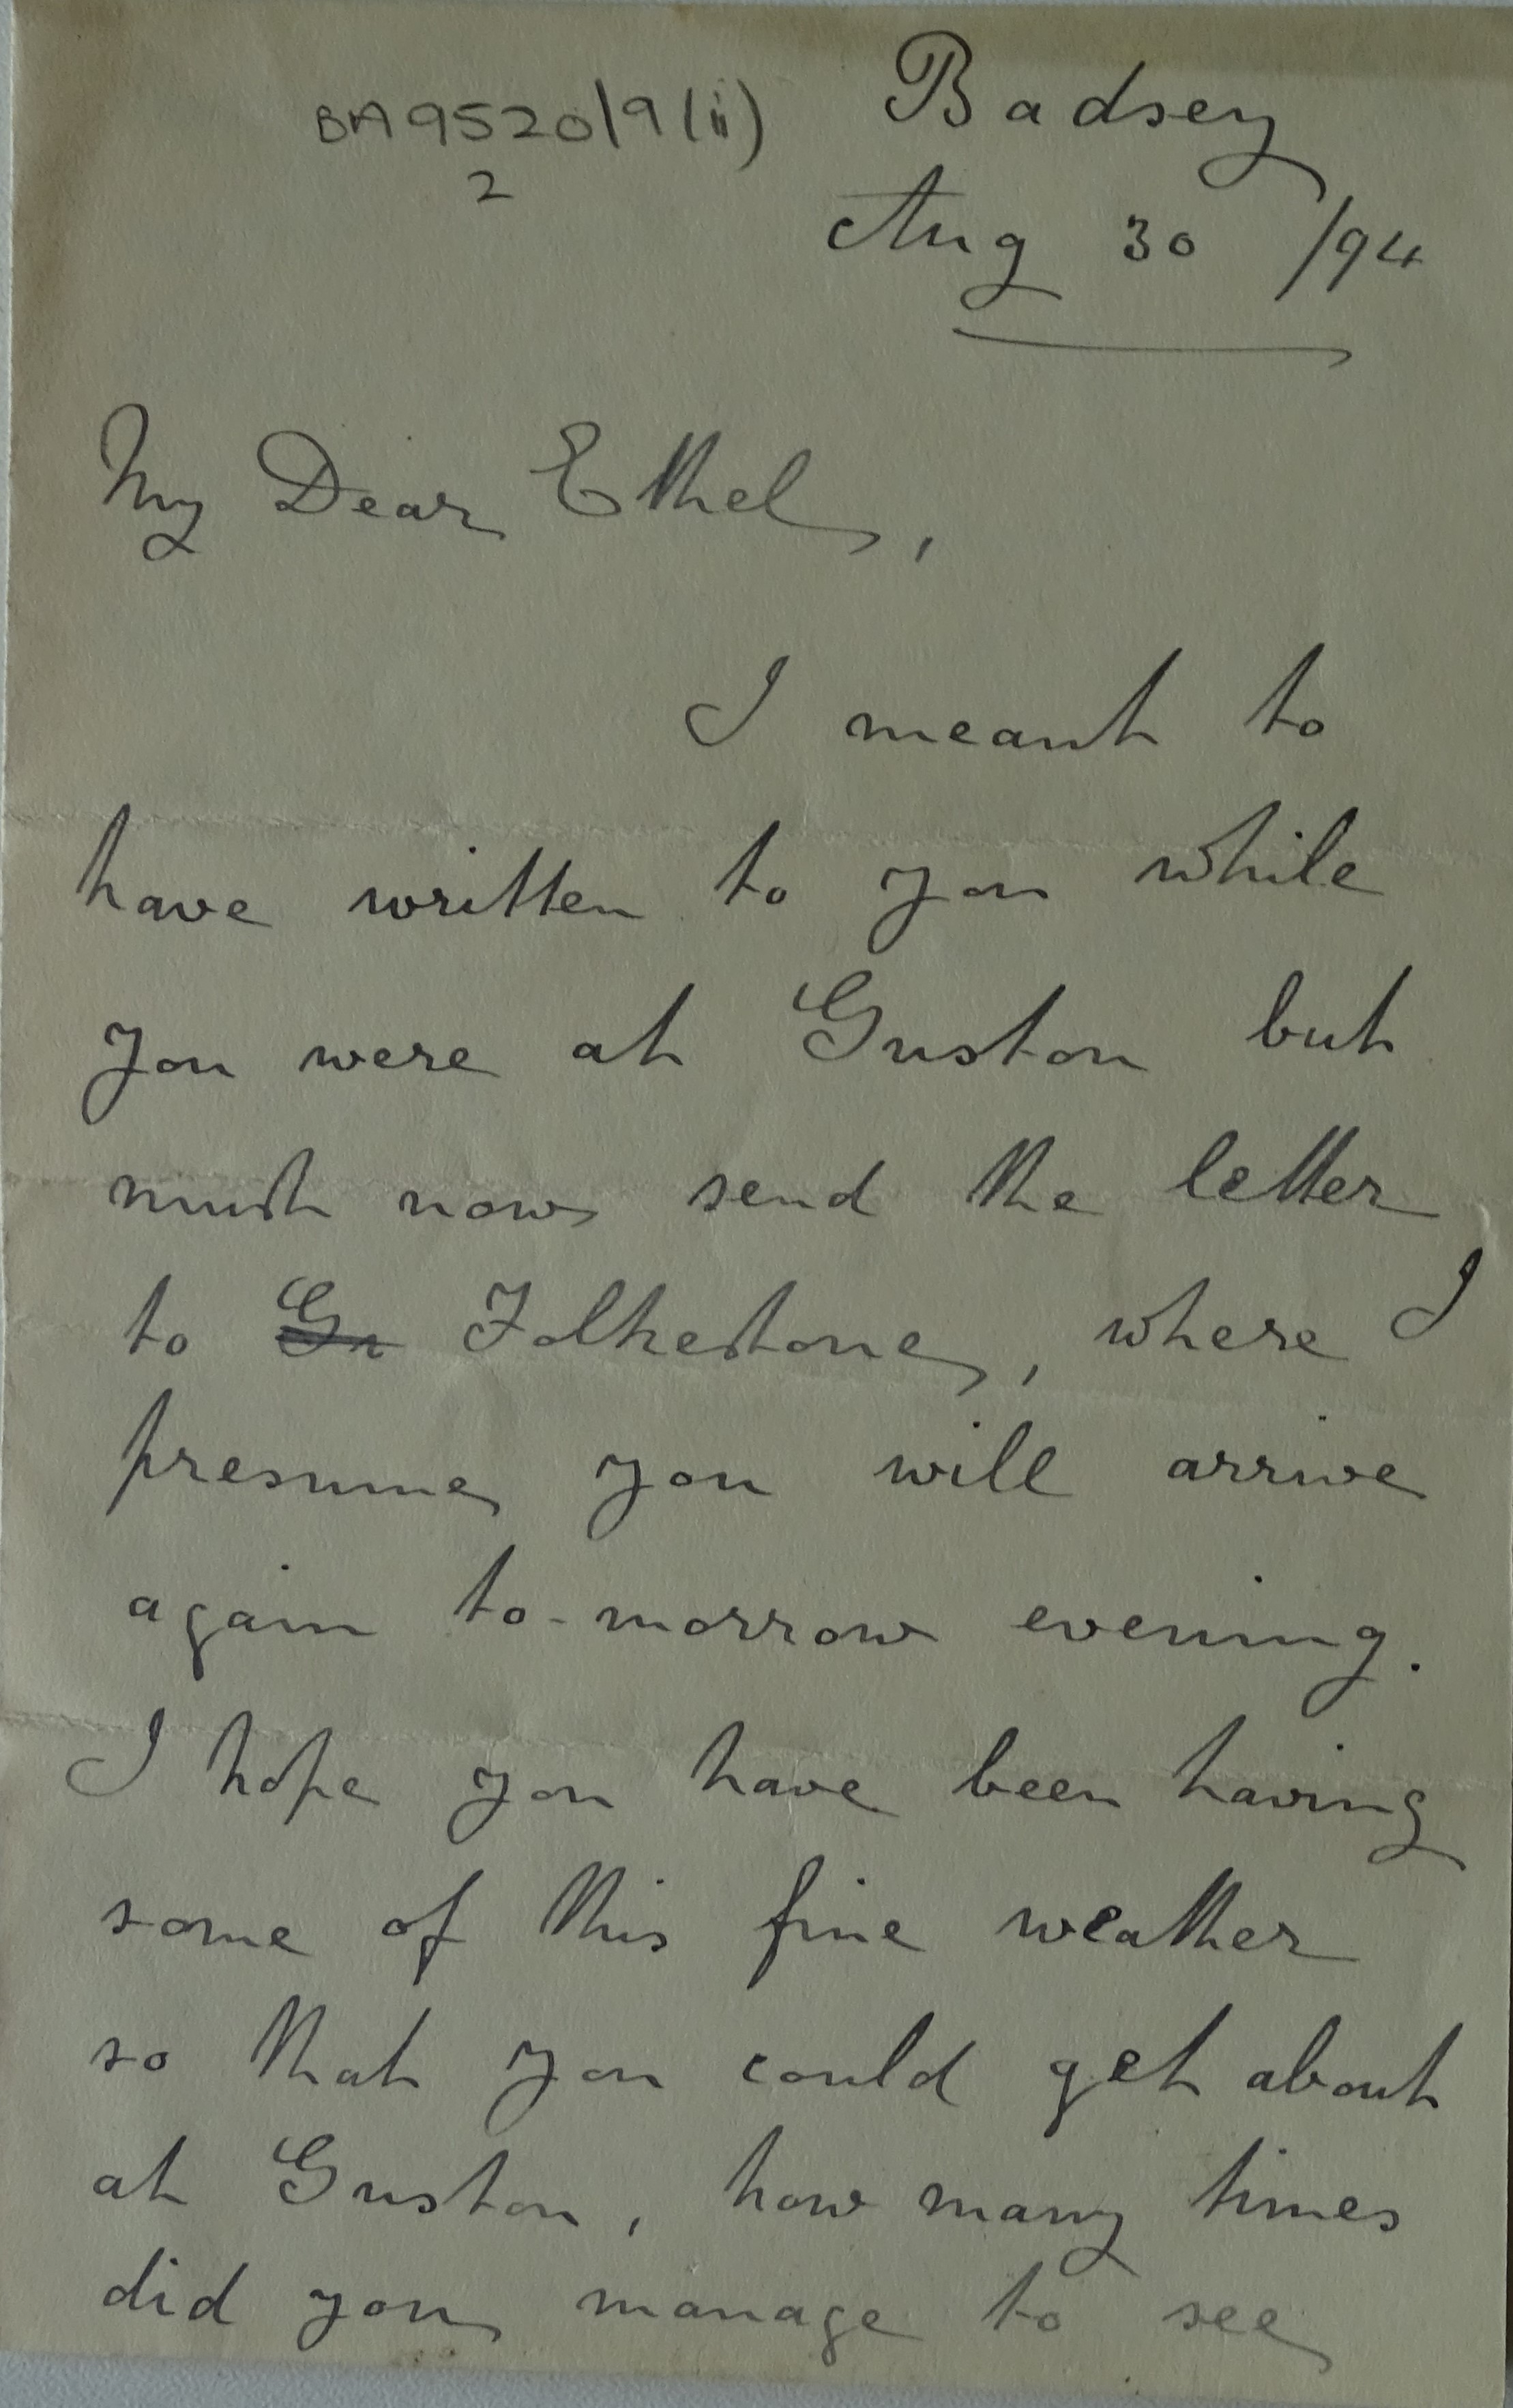 BA9520/9(ii)
2
Badsey
Aug 30 /94
My Dear Ethel,
I meant to
have written to you while
you were at Guston but
must now send the letter
to Gu Folkestone, where I
presume you will arrive
again to-morrow evening.
I hope you have been having
some of this fine weather
so that you could get about
at Guston, how many times
did you manage to see